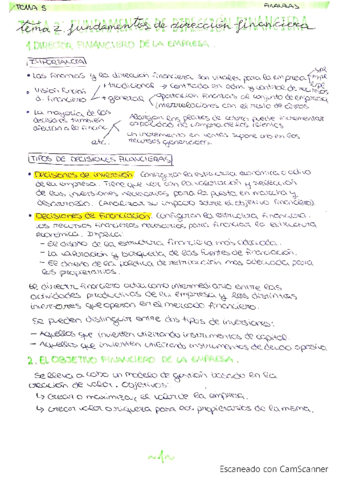 TEMA 5
Tema 2 fundamentos de dirección financiera
1. DIRECTOR FINANCIERO DE LA EMPRESA
IMPORTANCIA
• Las finanzas y la dirección financiera son vitales para la empresa
• Visión función
d. financiero
→ tradicional → centrada en adm y control de recursos
→ general → aportación financiera al conjunto de empresa
(interrelaciones con el resto de áreas
• La mayoría de las
decisiones también
afectan a la financ.
Alargar los plazos de cobro puede incrementar
capacidad de compra de los clientes
un incremento en ventas supone uno en los
recursos generados.
etc.
TIPOS DE DECISIONES FINANCIERAS
• Decisiones de inversión. Configuran la estructura económica o activo
de la empresa. Tiene que ver con la valoración y selección
de las inversiones necesarias para la puesta en marcha y
desarrollo. (Analizar su impacto sobre el objetivo financiero)
• Decisiones de financiación. Configuran la estructura financiera.
los recursos financieros necesarios para financiar la estructura
económica. Implica
- El diseño de la estructura financiera más adecuada.
- La valoración y búsqueda de las fuentes de financiación.
- El diseño de la política de retribución más adecuada para
los propietarios.
El director financiero actúa como intermediario entre las
actividades productivas de la empresa y los distintos
inversores que operan en el mercado financiero.
Se pueden distinguir entre dos tipos de inversores:
- Aquellos que invierten utilizando instrumentos de capital.
- Aquellos que invierten utilizando instrumentos de deuda
2. EL OBJETIVO FINANCIERO DE LA EMPRESA.
Se lleva a cabo un modelo de gestión basado en la
creación de valor. Objetivos:
↳ Crear o maximizar el valor de la empresa.
↳ Crear valor o riqueza para los propietarios de la misma.
~1~
Escaneado con CamScanner